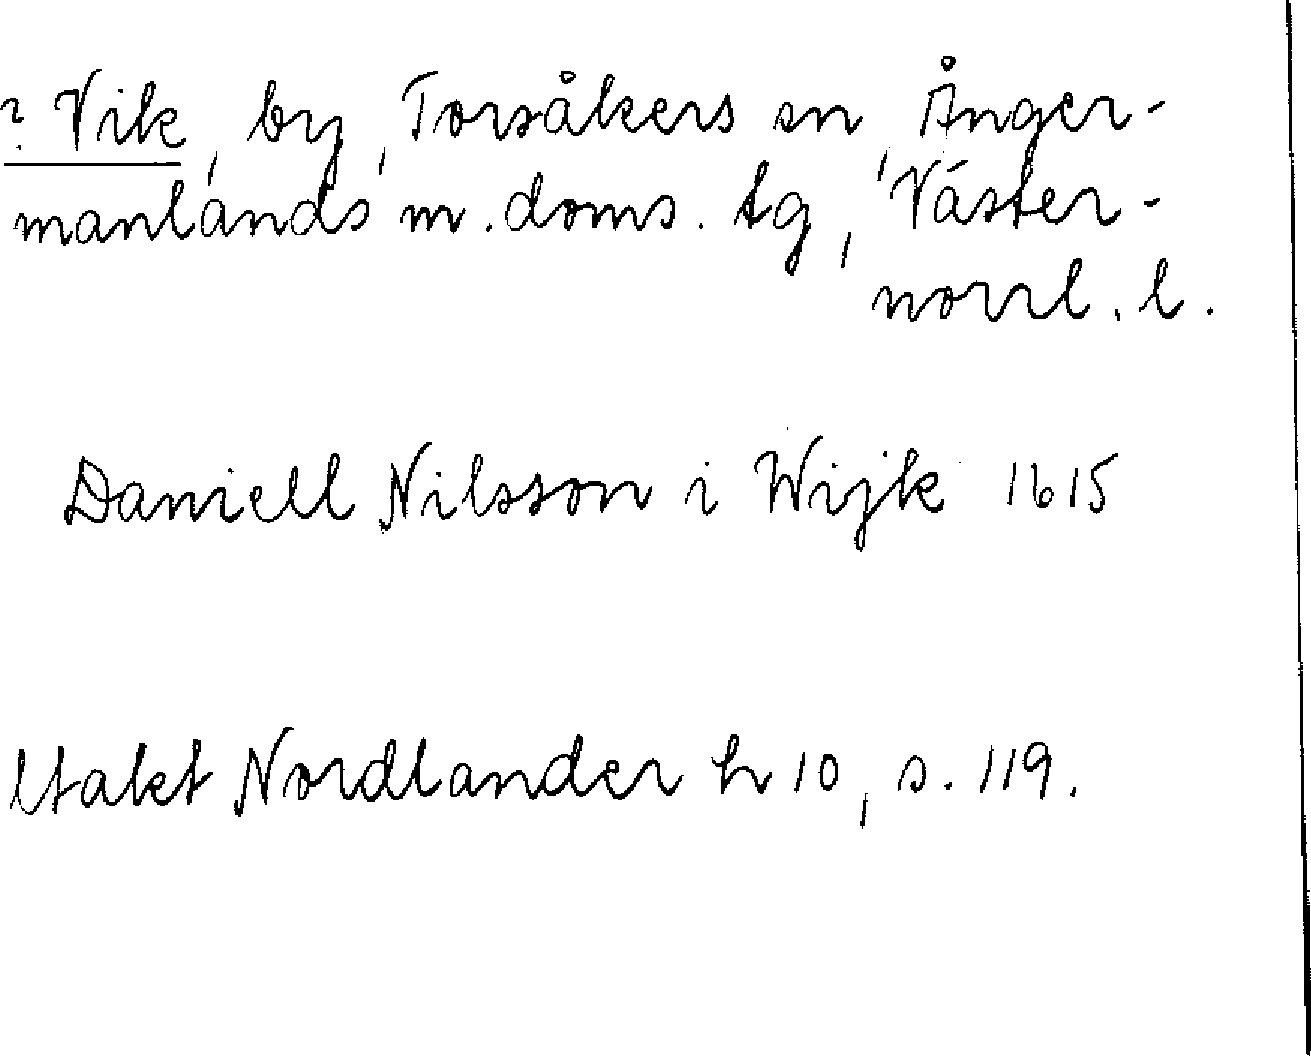 ? Vik, by, Torsåkers sn, Ånger-
manlands m. doms. tg, Väster-
norrl. l.
Daniell Nilsson i Wijk 1615
Utakt Nordlander h 10, s. 119.